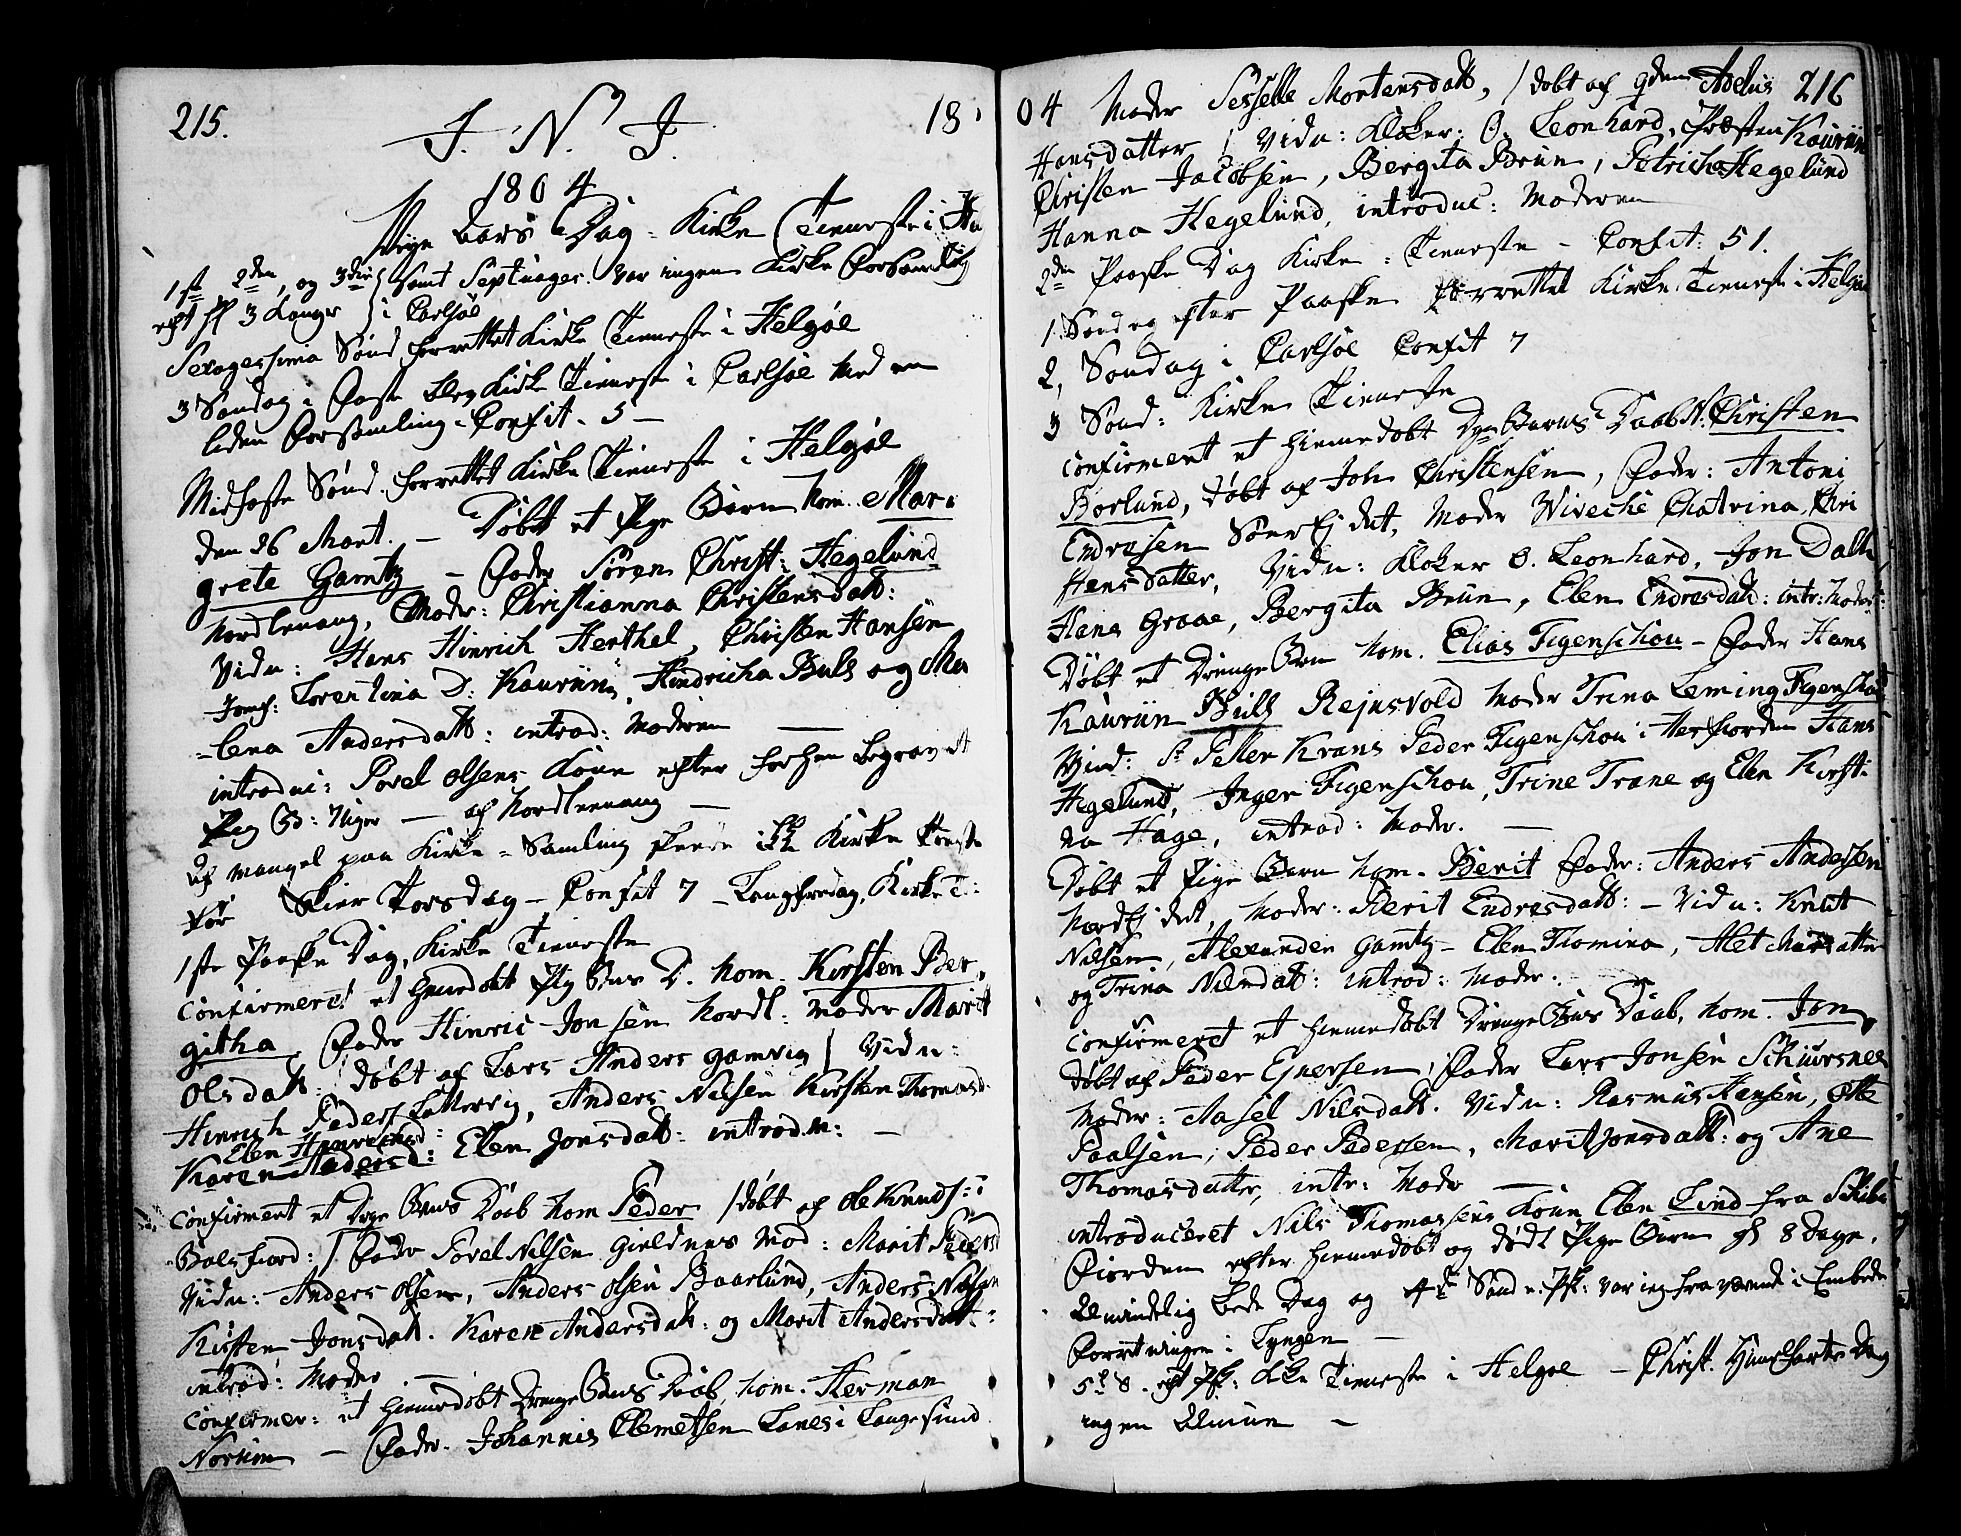 215.
J. N. J.
18
1804
Nye Aars Dag Kirke Tieneste i
1ste 2den, og 3die Samt Septuages. var ingen Kirke Forsamling
eft H 3 Konger i Carlsøe
Sexagesima Sønd. forrettet Kirke Tieneste i Helgøe
3 Søndag i Faste blev Kirke Tieneste i Carlsøe med en
liden Forsamling. Confit. 5 —
Midfaste Sønd. forrettet Kirke Tieneste i Helgøe
den 26 Mart. — Døbt et Pige Barn Nom. Mar-
grete Gamtz — Fader Søren Christ: Hegelund
Nordlenang, Moder: Christianna Christensdatt:
Vidn: Hans Hinrich Herthel, Christen Hansen
Jomf: Lorentina D: Kauriin, Hindricha Bull og Ma
-lena Andersdatt: introd: Moderen —
introdu: Povel Olsens Kone efter forhen begravet
Pig B: Niger — af Nordlenang —
af Mangel paa Kirke-Samling skeede ikke Kirke Tieneste
før Skier Torsdag — Confit 7 — Langfredag, Kirke T:
1ste Paaske Dag, Kirke Tieneste
Confirmeret et hiemdøbt Pig Bns D. Nom. Kirsten Ber-
githa, Fader Hinric Jonsen Nordl: Moder Marit
Olsdatt: / døbt af Lars Anders Gamvig / Vidn:
Hinrich Peders Lattervig, Anders Nilsen Kirsten Thomasd:
Elen Henrichsd:
Karen Andersd: Elen Jonsdatt: introd. M: —
Confirmeret et Drge Bns Daab Nom Peder / døbt af Ole Knuds: i
Balsfiord: / Fader Povel Nilsen Gieldnes Mod: Marit Pedersd
Vidn: Anders Olsen, Anders Olsen Baarlund, Anders Nilsen
Kirsten Jonsdatt. Karen Andersdatt: og Marit Andersdatt:
introd: Moder. —
Confirmer: et hiemedøbt Drenge Bns Daab, Nom. Herman
Norum — Fader. Johannis Clemetsen Lanes i Langesund
04 Moder Sesselle Mortensdatt, / døbt af Adelus 216
Hansdatter / Vidn: Kloker: O. Leonhard, Præsten Kauriin
Christen Jacobsen, Bergita Brun, Petricha Hegelund
Hanna Hegelund, introduc: Moderen
2den Paaske Dag Kirke-Tieneste — Confit: 51.
1. Søndag efter Paaske forrettet Kirke Tieneste i Helgøe
2, Søndag i Carlsøe Confit 7
3 Sønd: Kirke Tieneste
Confirmeret et hiemedøbt Dge Barns Daab N: Christen
Borlund, døbt af Joh Christensen, Fader: Antoni
Endresen Sønrfjdet, Moder Wiveche Chatrina Chri
stensdatter, Vidn: Kloker O. Leonhard, Jon Dalh
Hans Graae, Bergita Brun, Elen Endresdatt: intr: Moder:
Døbt et Drenge Brn Nom. Elias Figenschou — Fader Hans
Kauriin Bull Rejnsvold Moder Trina Leming Figenschou
Vind: Sr Petter Krans Peder Figenschou i Hersfiorden Hans
Hegelund, Inger Figenschou, Trine Trane og Elen Kirsti-
na Hage, introd: Moder. —
Døbt et Pige Barn Nom. Berit Fader: Anders Andersen
Nordfjdet, Moder: Berit Endresdatt: — Vidn: Knut
Nilsen, Alexander Gamtz — Elen Thomina, Alet
og Trina Nilsdatt: introd: Moder.
Confirmeret et hiemedøbt Drenge Bns Daab, Nom. Jon,
døbt af Peder Ejnersen, Fader Lars Jonsen Schiursnes
Moder: Aasel Nilsdatt. Vidn: Rasmus Hansen, Ole
Paalsen, Peder Pedersen, Marit Jonsdatt: og Ane
Thomasdatter, intr: Moder —
introduceret Nils Thomassens Kone Elen Lind fra Skibs
Fiorden efter hiemedøbt og dødt Pige Barn 8 Dage.
Almindelig Bede Dag og 4de Sønd e. Psk: var ieg fraværende i Embeds
Forretninger i Lyngen —
5te S. eft Psk: Kke Tieneste i Helgøe — Christ. Himelfarts Dag
ingen Almue —